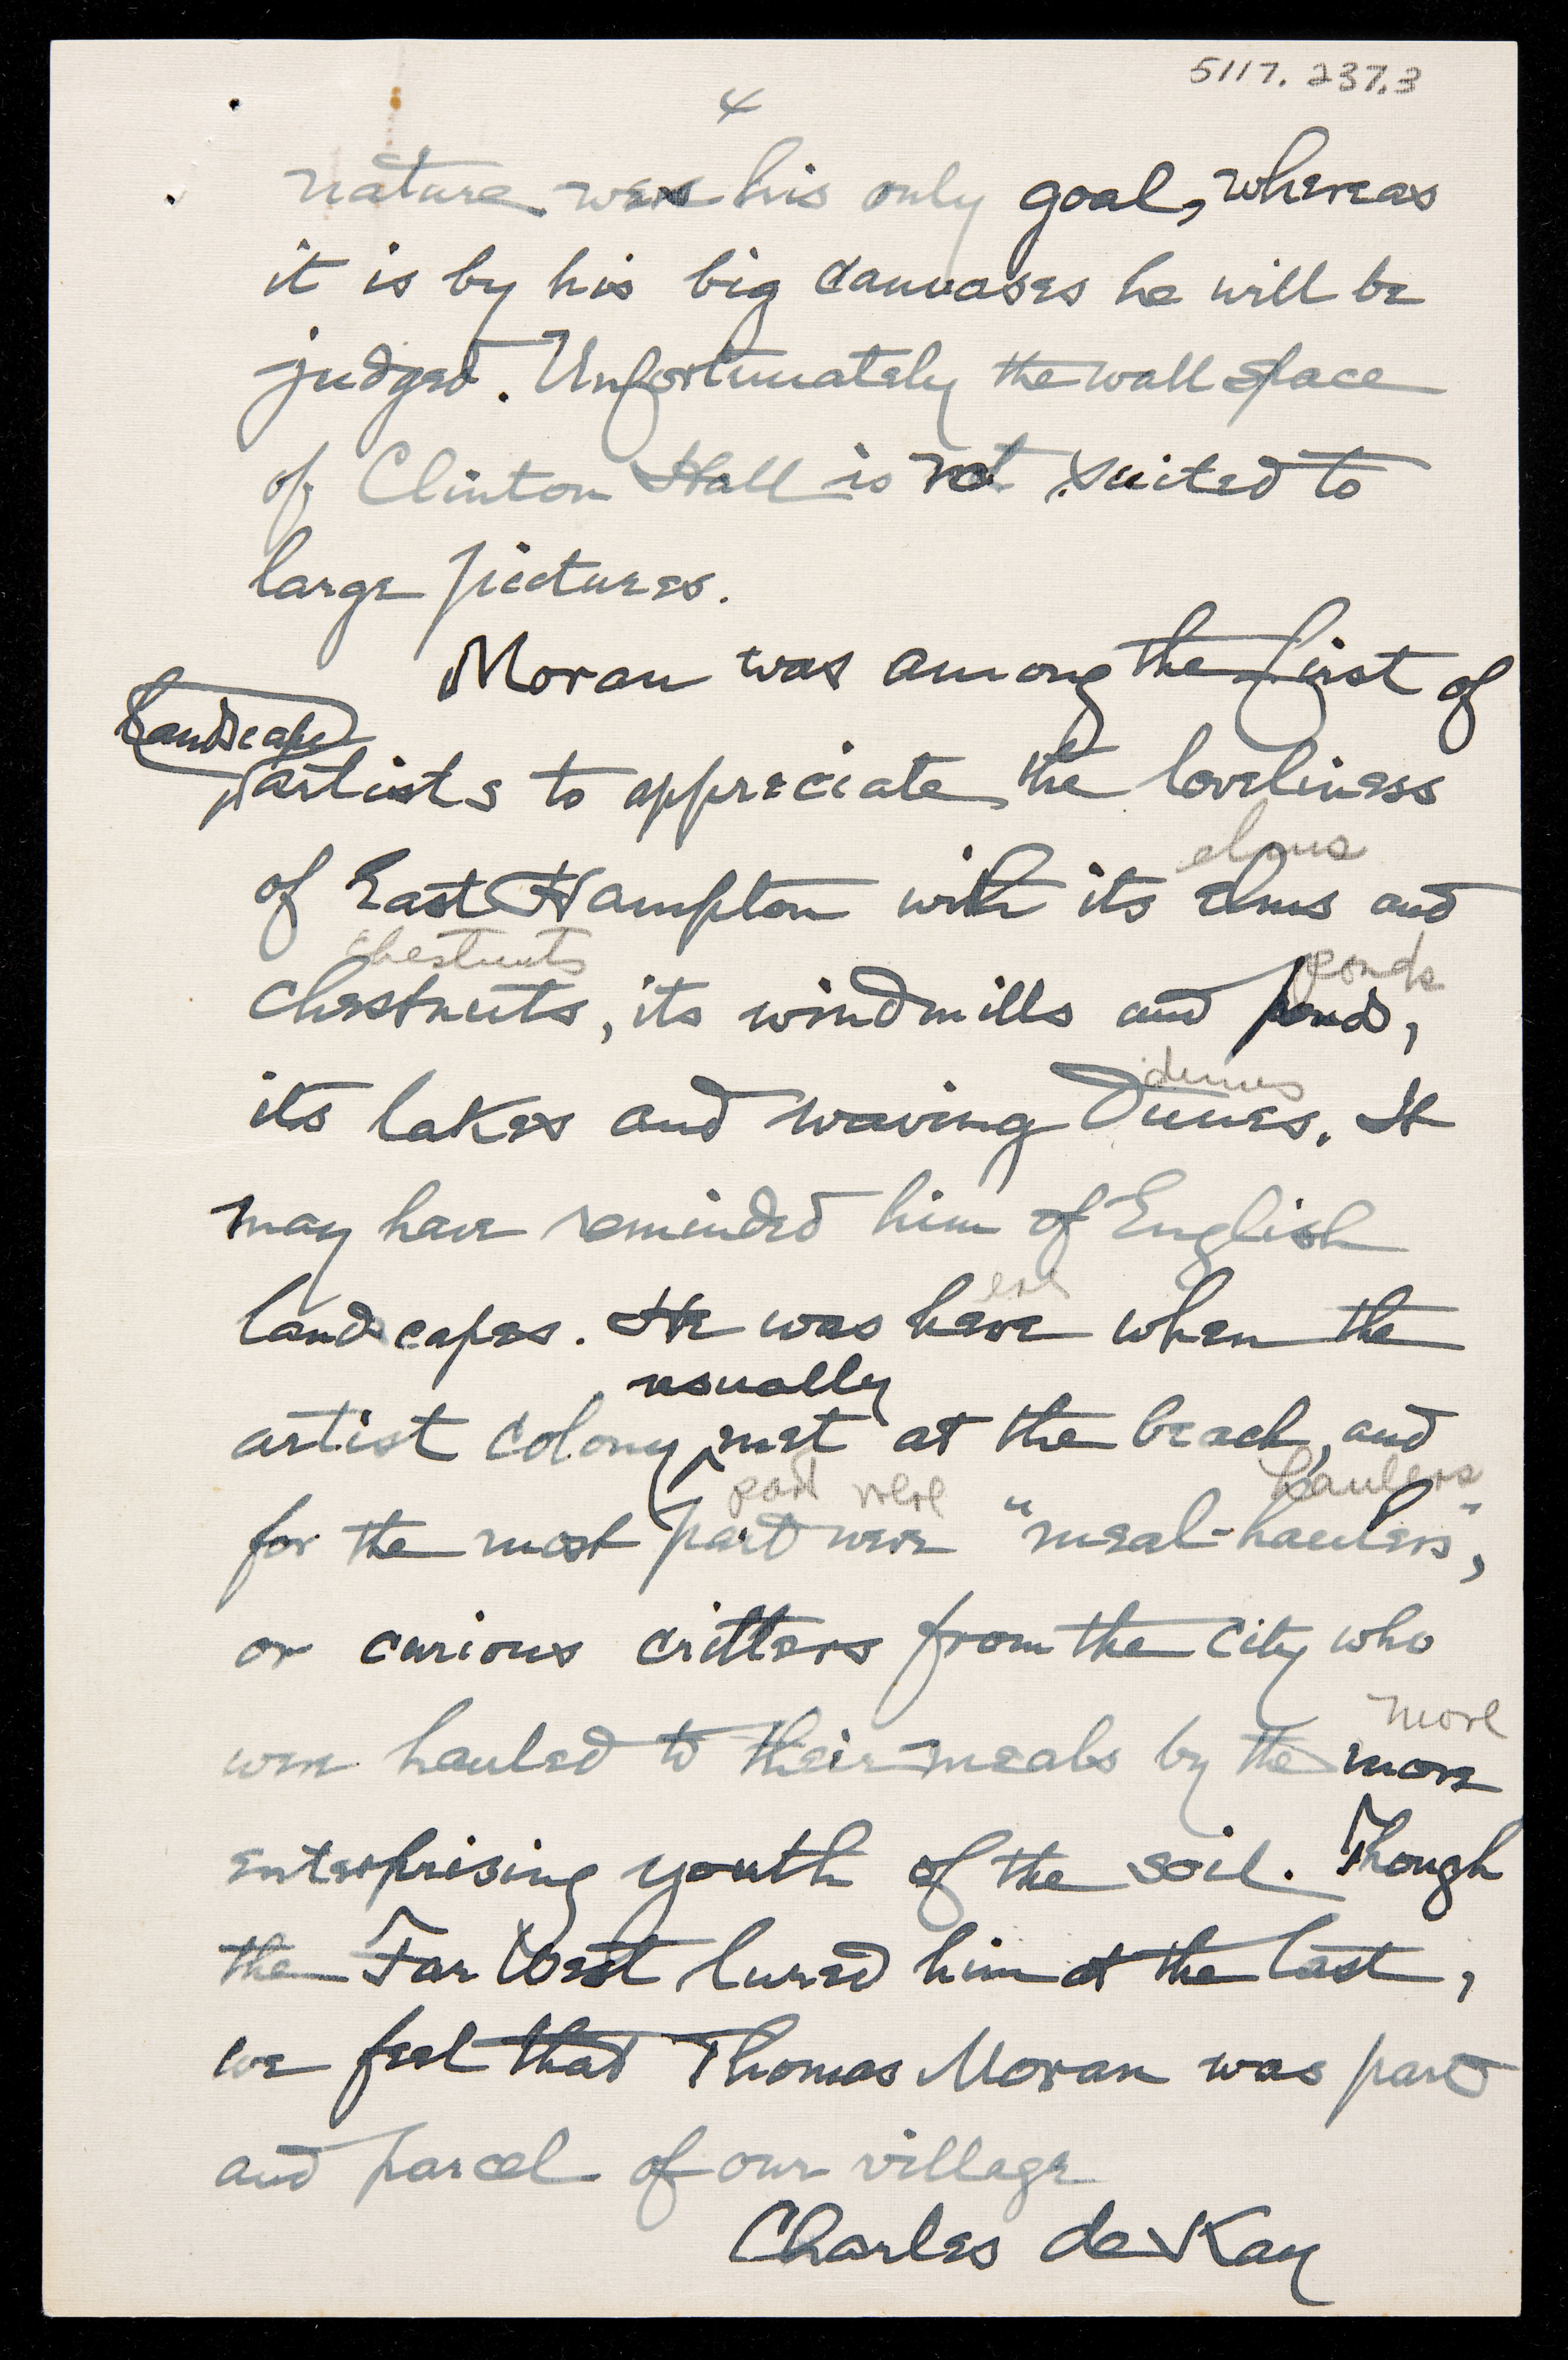 5117.237.3
4
nature was his only goal, whereas
it is by his big canvases he will be
judged. Unfortunately the wall space
of Clinton Hall is not suited to
large pictures.
Moran was among the first of
Landscape
artists to appreciate the loveliness
elms
of East Hampton with its elms and
chestnuts ponds
chestnuts, its windmills and ponds,
dunes
its lakes and waving Dunes. It
may have reminded him of English
ere
landscapes. He was here when the
usually
artist colony met at the beach, and
part were haulers
for the most part were "meal-haulers",
or curious critters from the city who
more
were hauled to their meals by the more
enterprising youth of the soil. Though
the Far West lured him at the last,
we feel that Thomas Moran was part
and parcel of our village
Charles de Kay